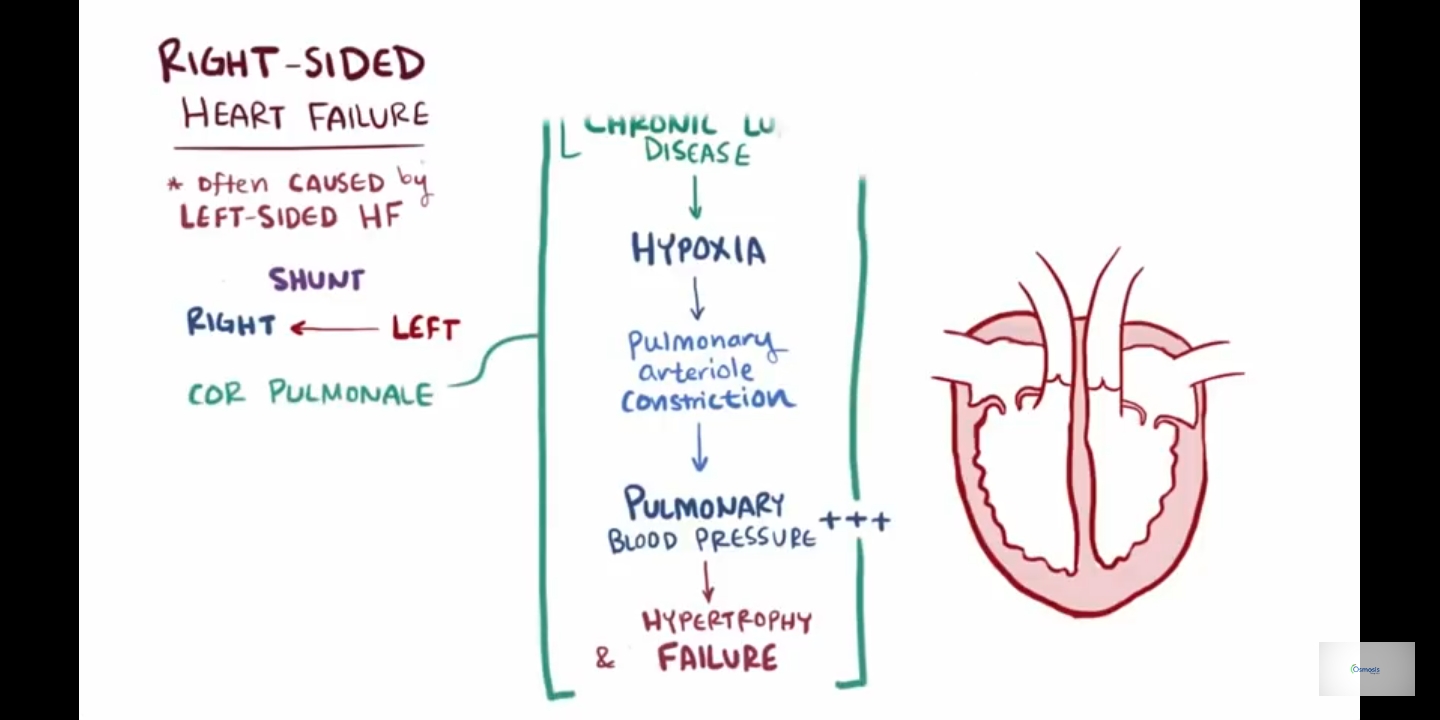 RIGHT-SIDED
HEART FAILURE
* often CAUSED by
LEFT-SIDED HF
SHUNT
RIGHT ← LEFT
COR PULMONALE
CHRONIC
DISEASE
↓
HYPOXIA
↓
Pulmonary
arteriole
constriction
↓
PULMONARY
BLOOD PRESSURE +++
↓
HYPERTROPHY
& FAILURE
Osmosis